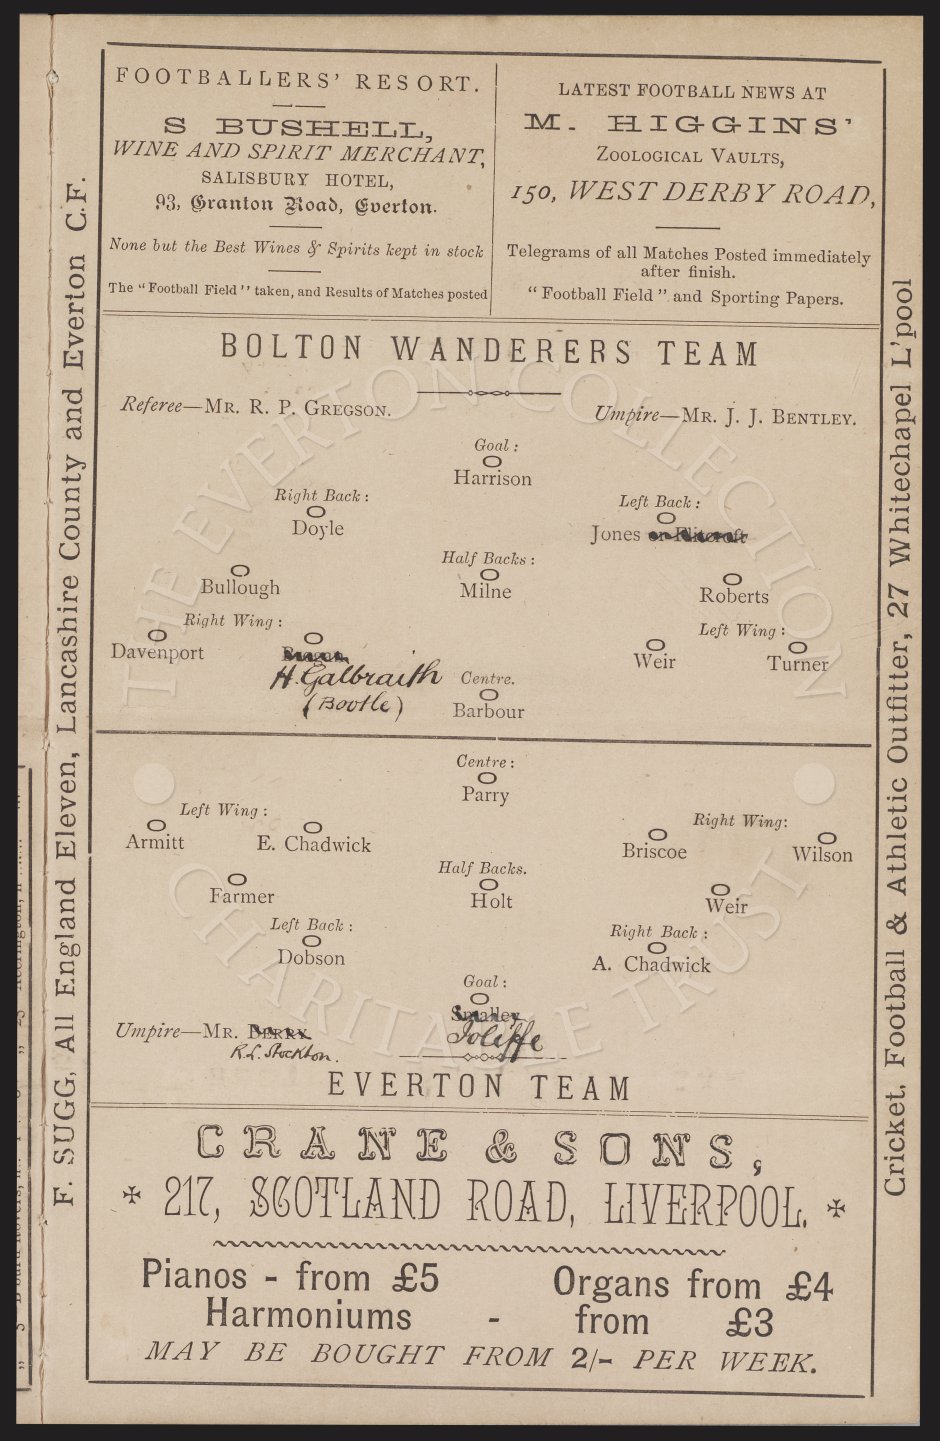 FOOTBALLERS' RESORT.
S BUSHELL,
WINE AND SPIRIT MERCHANT,
SALISBURY HOTEL,
93, Granton Road, Everton.
None but the Best Wines & Spirits kept in stock
The "Football Field" taken, and Results of Matches posted
LATEST FOOTBALL NEWS AT
M. HIGGINS'
ZOOLOGICAL VAULTS,
150, WEST DERBY ROAD,
Telegrams of all Matches Posted immediately
after finish.
"Football Field" and Sporting Papers.
F. SUGG, All England Eleven, Lancashire County and Everton C.F.
BOLTON WANDERERS TEAM
Referee—MR. R. P. GREGSON.
Umpire—MR. J. J. BENTLEY.
Goal:
Harrison
Right Back:
Left Back:
Doyle
Jones or Flitcroft
Half Backs:
Bullough
Milne
Roberts
Right Wing:
Left Wing:
Davenport
Weir
Turner
H. Galbraith
(Bootle)
Centre.
Barbour
Centre:
Parry
Left Wing:
Right Wing:
Armitt
E. Chadwick
Briscoe
Wilson
Half Backs.
Farmer
Holt
Weir
Left Back:
Right Back:
Dobson
A. Chadwick
Goal:
Smalley
Joliffe
Umpire—MR. BERRY.
R.L. Stockton.
EVERTON TEAM
CRANE & SONS,
217, SCOTLAND ROAD, LIVERPOOL.
Pianos - from £5
Organs from £4
Harmoniums - from £3
MAY BE BOUGHT FROM 2/- PER WEEK.
Cricket, Football & Athletic Outfitter, 27 Whitechapel L'pool
THE EVERTON COLLECTION
CHARITABLE TRUST